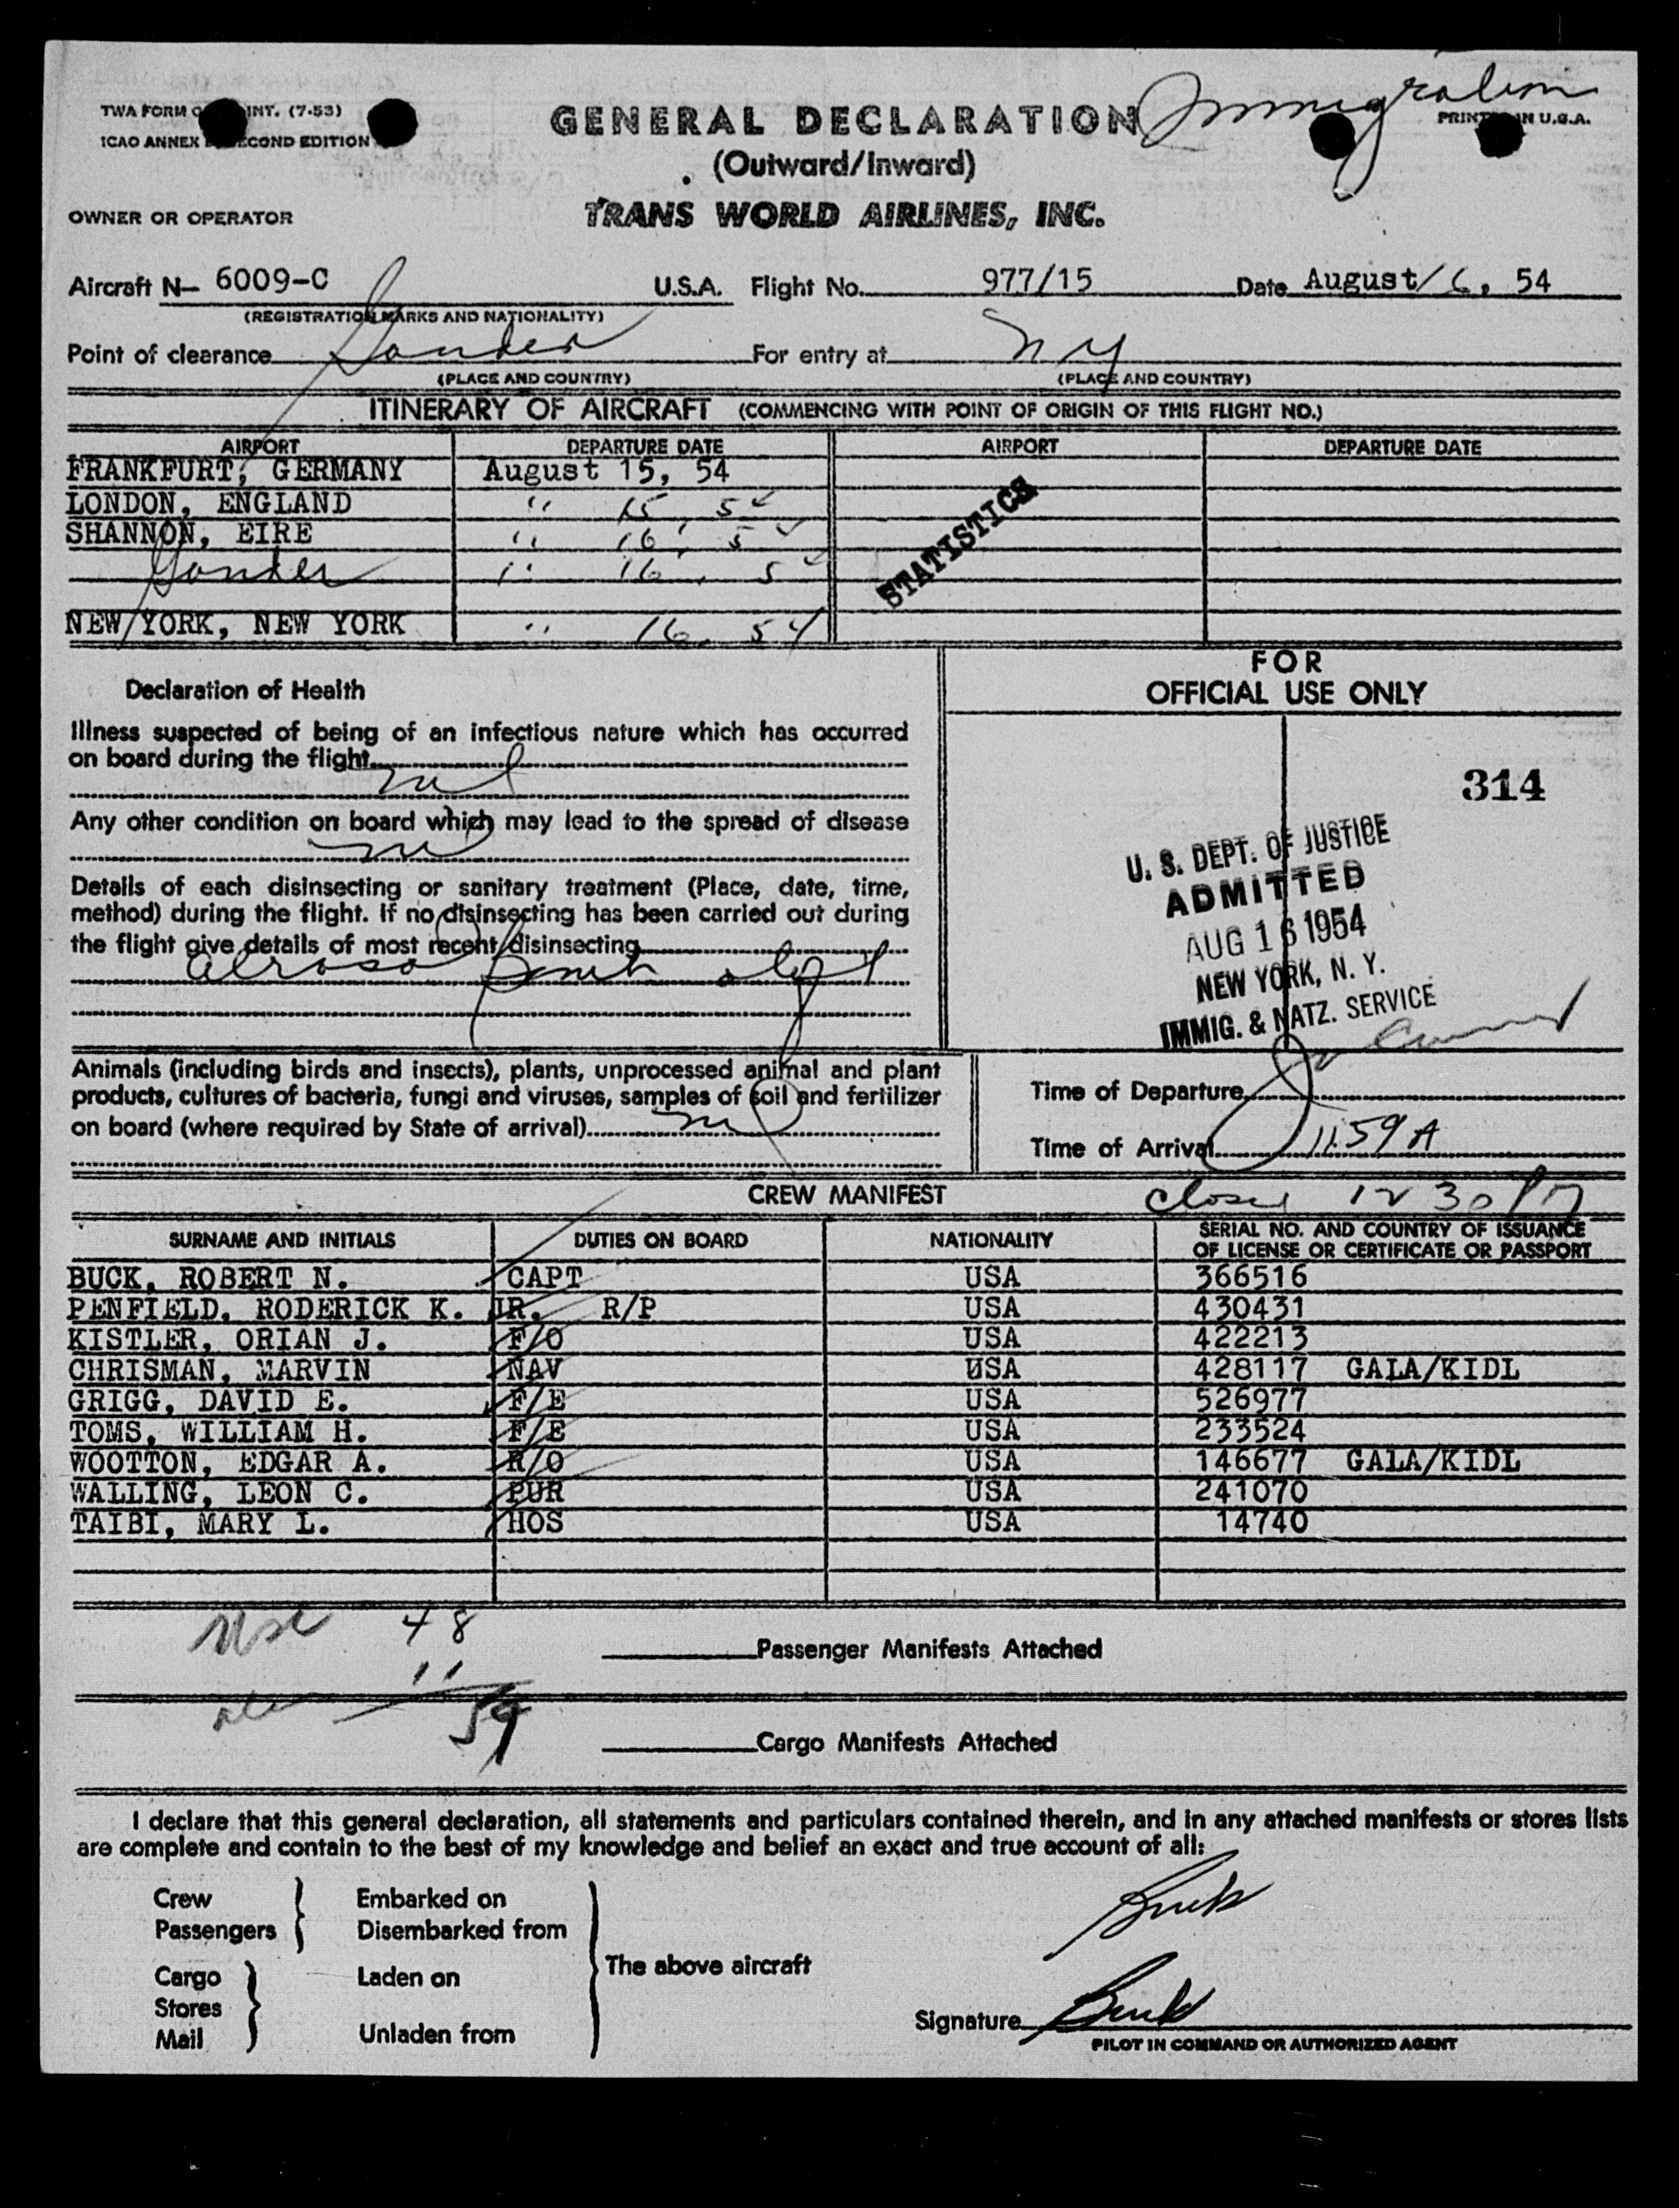 Immigration
TWA FORM INT. (7-53)
ICAO ANNEX SECOND EDITION
PRINTED IN U.S.A.
GENERAL DECLARATION
(Outward/Inward)
OWNER OR OPERATOR
TRANS WORLD AIRLINES, INC.
Aircraft N- 6009-C U.S.A. Flight No. 977/15 Date August 16, 54
(REGISTRATION MARKS AND NATIONALITY)
Point of clearance Gander For entry at NY
(PLACE AND COUNTRY) (PLACE AND COUNTRY)
ITINERARY OF AIRCRAFT (COMMENCING WITH POINT OF ORIGIN OF THIS FLIGHT NO.)
AIRPORT DEPARTURE DATE AIRPORT DEPARTURE DATE
FRANKFURT, GERMANY August 15, 54
LONDON, ENGLAND " 15, 54
SHANNON, EIRE " 16, 54
Gander " 16, 54
STATISTICS
NEW YORK, NEW YORK " 16, 54
FOR
OFFICIAL USE ONLY
Declaration of Health
Illness suspected of being of an infectious nature which has occurred
on board during the flight nil
Any other condition on board which may lead to the spread of disease
nil
Details of each disinsecting or sanitary treatment (Place, date, time,
method) during the flight. If no disinsecting has been carried out during
the flight give details of most recent disinsecting
314
U. S. DEPT. OF JUSTICE
ADMITTED
AUG 16 1954
NEW YORK, N. Y.
IMMIG. & NATZ. SERVICE
Animals (including birds and insects), plants, unprocessed animal and plant
products, cultures of bacteria, fungi and viruses, samples of soil and fertilizer
on board (where required by State of arrival) nil
Time of Departure
Time of Arrival 11:59 A
CREW MANIFEST
Closed 12 30 P
SURNAME AND INITIALS DUTIES ON BOARD NATIONALITY SERIAL NO. AND COUNTRY OF ISSUANCE
OF LICENSE OR CERTIFICATE OR PASSPORT
BUCK, ROBERT N. CAPT USA 366516
PENFIELD, RODERICK K. JR. R/P USA 430431
KISTLER, ORIAN J. F/O USA 422213
CHRISMAN, MARVIN NAV USA 428117 GALA/KIDL
GRIGG, DAVID E. F/E USA 526977
TOMS, WILLIAM H. F/E USA 233524
WOOTTON, EDGAR A. R/O USA 146677 GALA/KIDL
WALLING, LEON C. PUR USA 241070
TAIBI, MARY L. HOS USA 14740
48
Passenger Manifests Attached
11
59
Cargo Manifests Attached
I declare that this general declaration, all statements and particulars contained therein, and in any attached manifests or stores lists
are complete and contain to the best of my knowledge and belief an exact and true account of all:
Crew Embarked on
Passengers Disembarked from
Buck
The above aircraft
Cargo Laden on
Stores
Mail Unladen from
Signature Buck
PILOT IN COMMAND OR AUTHORIZED AGENT